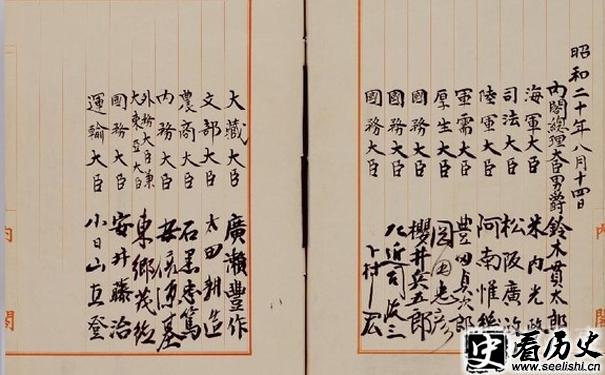 昭和二十年八月十四日
內閣總理大臣男爵 鈴木貫太郎
海軍大臣 米内光政
司法大臣 松阪廣政
陸軍大臣 阿南惟幾
軍需大臣 豊田貞次郎
厚生大臣 岡田忠彦
國務大臣 櫻井兵五郎
國務大臣 左近司政三
國務大臣 下村宏
大藏大臣 廣瀨豐作
文部大臣 太田耕造
農商大臣 石黑忠篤
內務大臣 安倍源基
外務大臣兼
大東亞大臣 東鄉茂德
國務大臣 安井藤治
運輸大臣 小日山直登
内
閣
内
閣
史 看历史
www.seelishi.cn